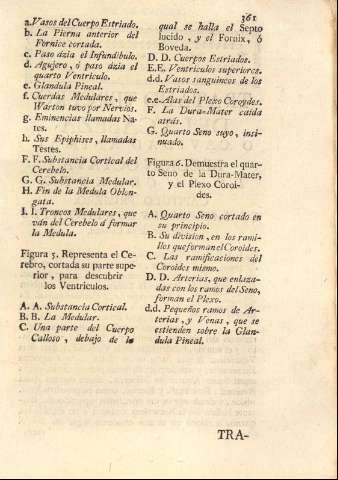 361
a. Vasos del Cuerpo Estriado.
b. La Pierna anterior del
Fornice cortada.
c. Paso ázia el Infundibulo.
d. Agujero, ó paso ázia el
quarto Ventriculo.
e. Glandula Pineal.
f. Cuerdas Medulares, que
Warton tuvo por Nervios.
g. Eminencias llamadas Na-
tes.
h. Sus Epiphises, llamadas
Testes.
F. F. Substancia Cortical del
Cerebelo.
G. G. Substancia Medular.
H. Fin de la Medula Oblon-
gata.
I. I. Troncos Medulares, que
ván del Cerebelo á formar
la Medula.
Figura 5. Representa el Ce-
rebro, cortada su parte supe-
rior, para descubrir
los Ventriculos.
A. A. Substancia Cortical.
B. B. La Medular.
C. Una parte del Cuerpo
Calloso, debajo de lo
qual se halla el Septo
lucido, y el Fornix, ó
Boveda.
D. D. Cuerpos Estriados.
E. E. Ventriculos superiores.
d.d. Vasos sanguineos de los
Estriados.
e.e. Alas del Plexo Coroydes.
F. La Dura-Mater caída
atrás.
G. Quarto Seno suyo, insi-
nuado.
Figura 6. Demuestra el quar-
to Seno de la Dura-Mater,
y el Plexo Coroi-
des.
A. Quarto Seno cortado en
su principio.
B. Su division, en los rami-
llos que forman el Coroides.
C. Las ramificaciones del
Coroides mismo.
D. D. Arterias, que enlaza-
das con los ramos del Seno,
forman el Plexo.
d.d. Pequeños ramos de Ar-
terias, y Venas, que se
estienden sobre la Glan-
dula Pineal.
TRA-